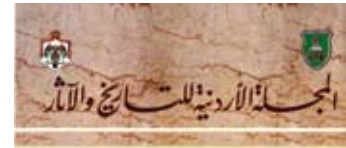 المجلة الأردنية للتاريخ والآثار